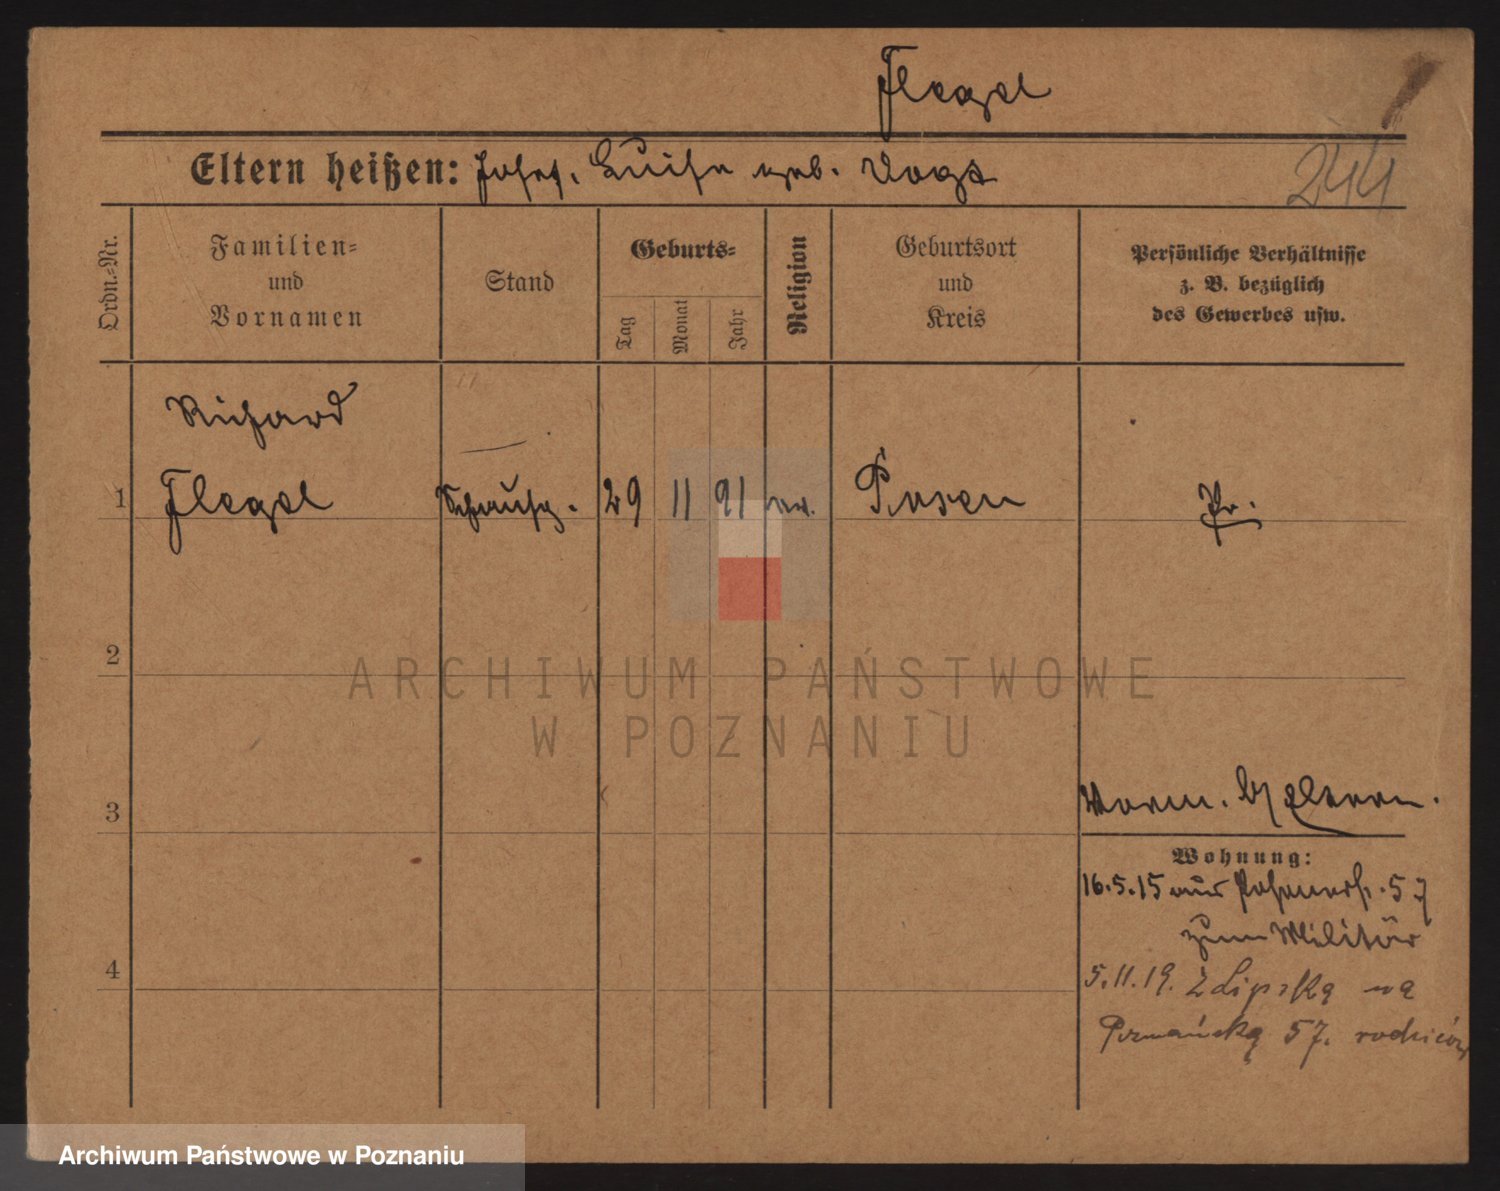 Flegel
Eltern heißen: Josef, Luise geb. Vogt
244
Ordn.-Nr.
Familien-
und
Vornamen
Stand
Geburts-
Tag
Monat
Jahr
Religion
Geburtsort
und
Kreis
Persönliche Verhältnisse
z. B. bezüglich
des Gewerbes usw.
Richard
1 Flegel 29 11 91 ev. Posen Pr.
2
3
Vorm. b/ Eltern.
Wohnung:
16.5.15 aus Posenerst. 57
zum Militär
4
5.11.19. Z Lipską na
Poznańską 57. rodziców
ARCHIWUM PAŃSTWOWE
W POZNANIU
Archiwum Państwowe w Poznaniu